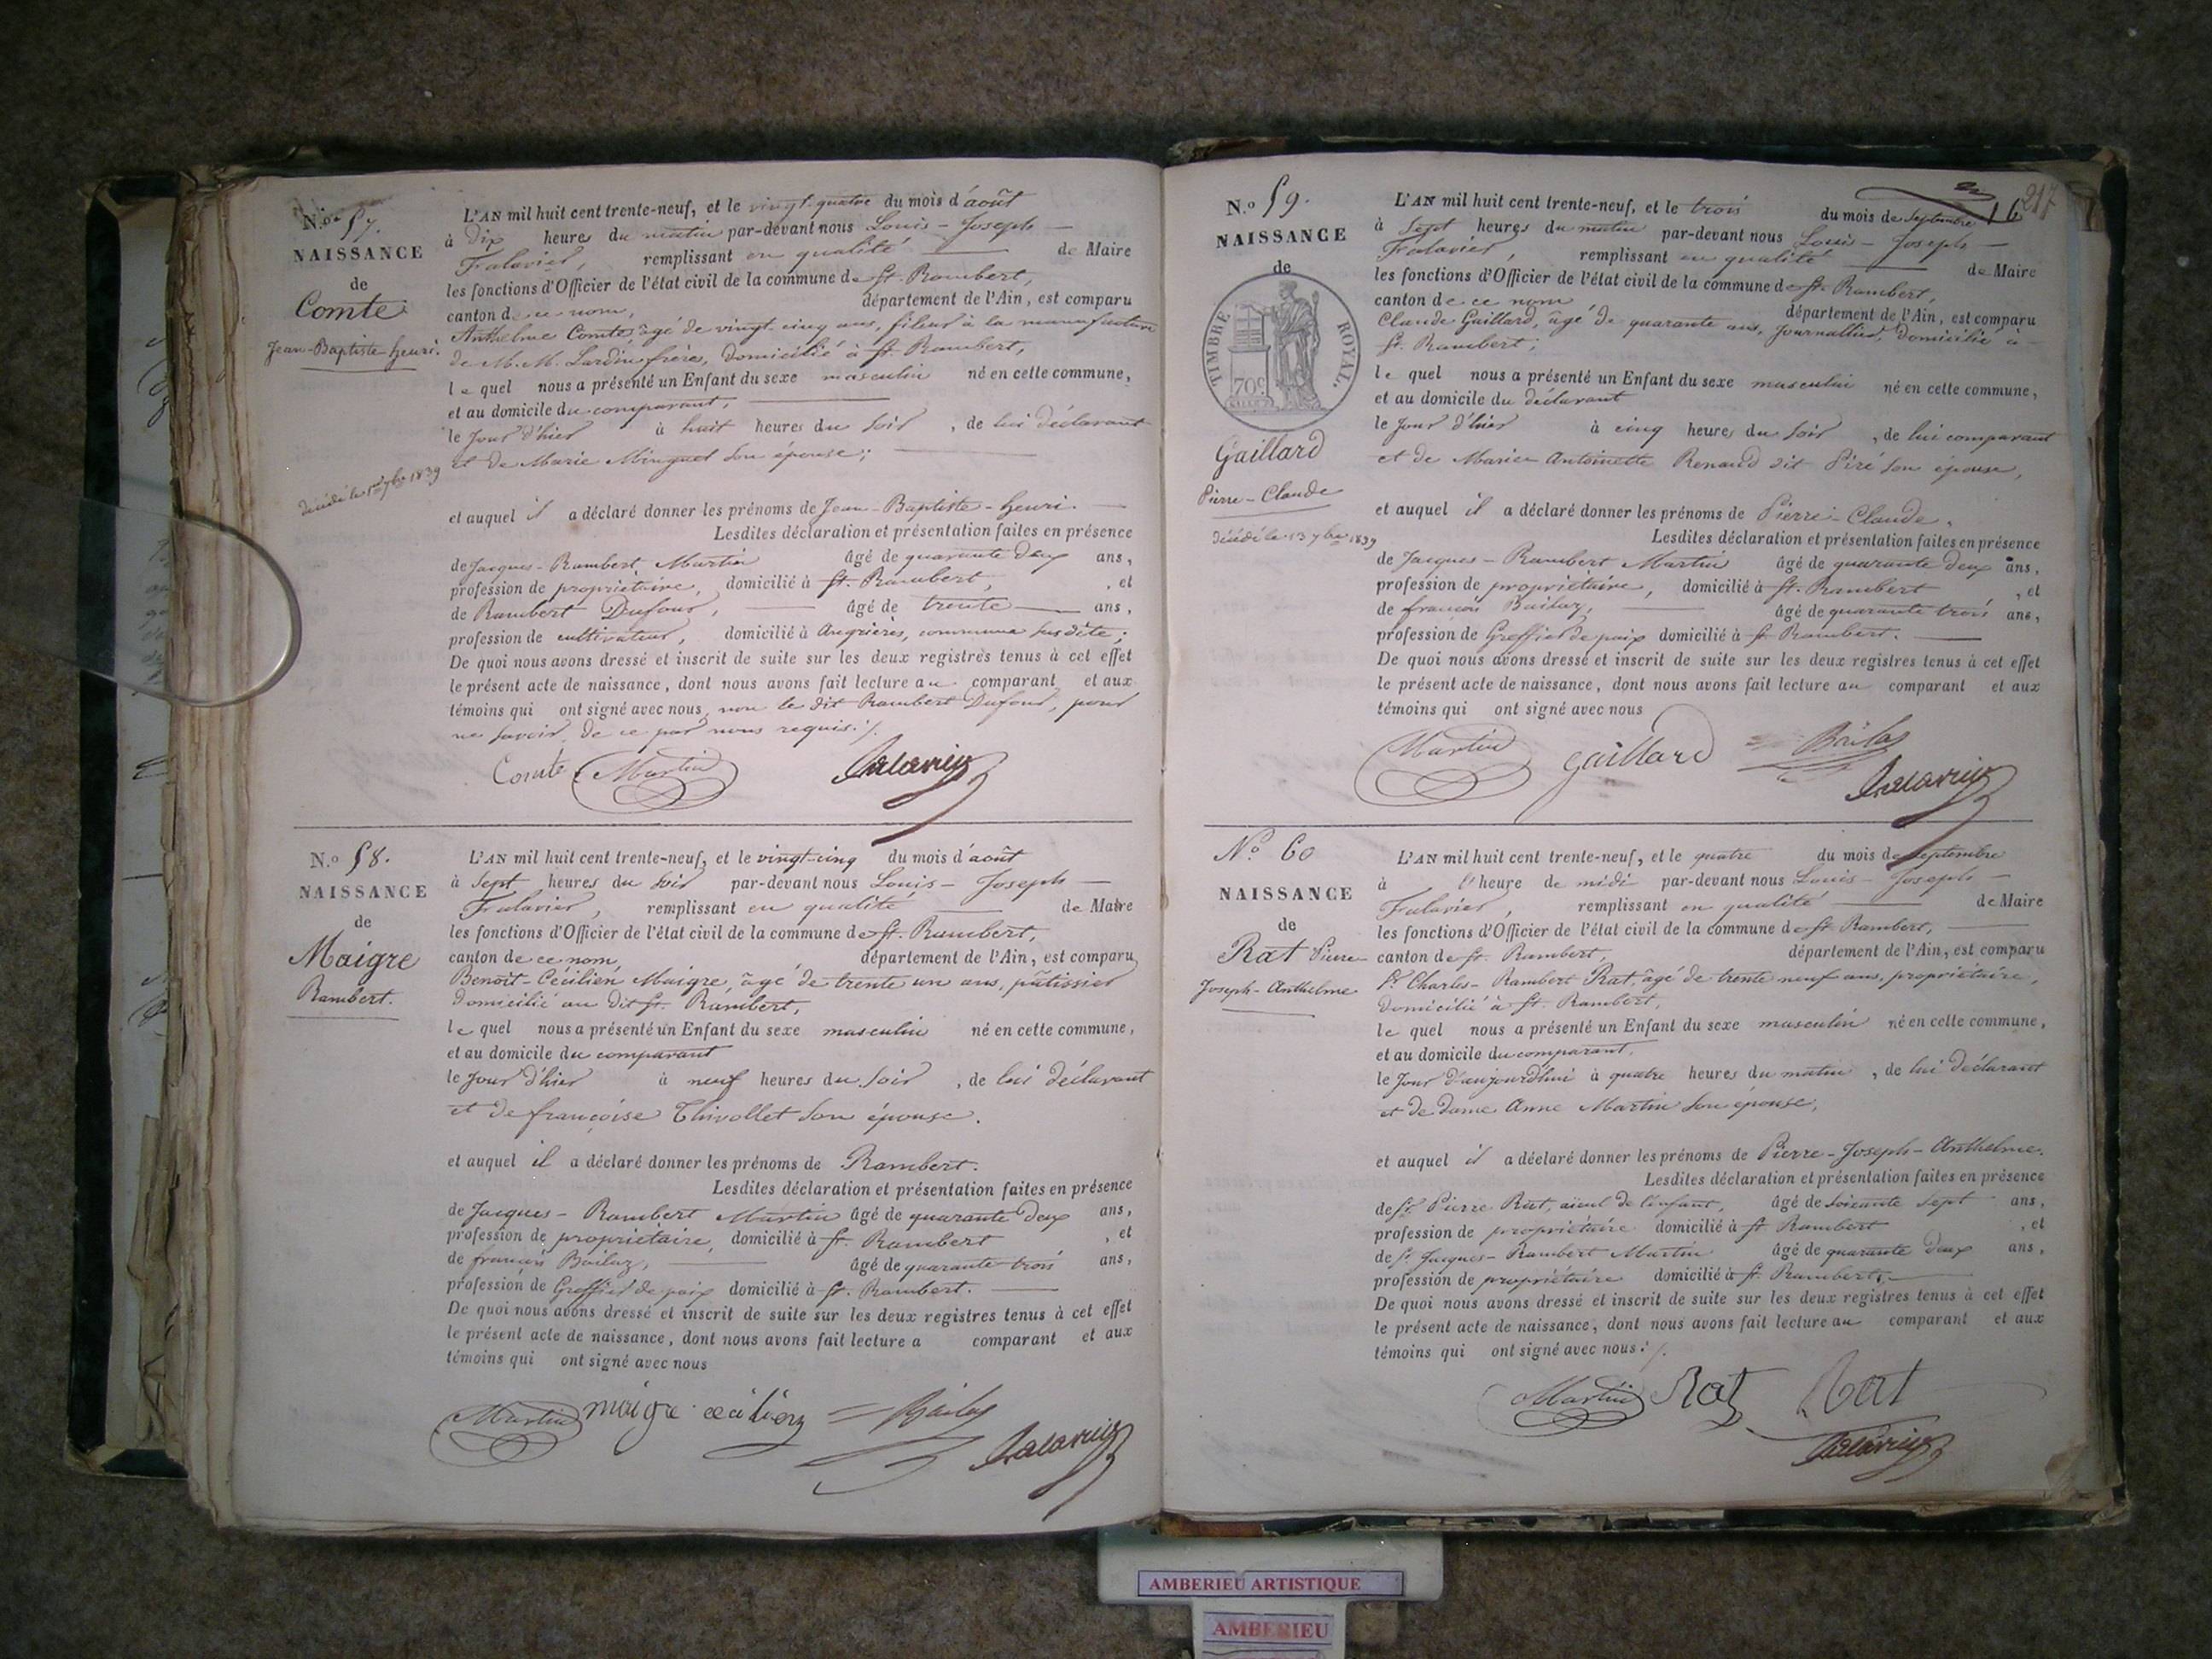 N.o 57.
NAISSANCE
de
Comte
Jean-Baptiste henri.
décédé le 1839
L'AN mil huit cent trente-neuf, et le vingt-quatre du mois d'août
à Dix heures du matin par-devant nous Louis - Joseph
Falavier, remplissant en qualité de Maire
les fonctions d'Officier de l'état civil de la commune de St. Rambert,
canton de ce nom, département de l'Ain, est comparu
Anthelme Comte, âgé de vingt-cinq ans, fileur à la manufacture
de M.M. Lardin frères, domicilié à St. Rambert,
lequel nous a présenté un Enfant du sexe masculin né en cette commune,
et au domicile du comparant,
le jour d'hier à huit heures du soir, de lui déclarant
et de Marie Minguet son épouse;
et auquel il a déclaré donner les prénoms de Jean-Baptiste-henri.
Lesdites déclaration et présentation faites en présence
de Jacques-Rambert Martin âgé de quarante deux ans,
profession de propriétaire, domicilié à St. Rambert, et
de Rambert Dufour, âgé de trente ans,
profession de cultivateur, domicilié à Angrières, commune susdite;
De quoi nous avons dressé et inscrit de suite sur les deux registres tenus à cet effet
le présent acte de naissance, dont nous avons fait lecture au comparant et aux
témoins qui ont signé avec nous, non le dit Rambert Dufour, pour
ne savoir, de ce par nous requis ./.
Comte Martin Falavier
N.o 58.
NAISSANCE
de
Maigre
Rambert.
L'AN mil huit cent trente-neuf, et le vingt-cinq du mois d'août
à Sept heures du soir par-devant nous Louis - Joseph
Falavier, remplissant en qualité de Maire
les fonctions d'Officier de l'état civil de la commune de St. Rambert,
canton de ce nom département de l'Ain, est comparu
Benoît-Cécilien Maigre, âgé de trente un ans, pâtissier
domicilié au dit St. Rambert,
lequel nous a présenté un Enfant du sexe masculin né en cette commune,
et au domicile du comparant
le jour d'hier à neuf heures du soir, de lui déclarant
et de françoise Thivollet son épouse.
et auquel il a déclaré donner les prénoms de Rambert.
Lesdites déclaration et présentation faites en présence
de Jacques - Rambert Martin âgé de quarante deux ans,
profession de propriétaire, domicilié à St. Rambert, et
de françois Bailaz, âgé de quarante trois ans,
profession de Greffier de paix domicilié à St. Rambert.
De quoi nous avons dressé et inscrit de suite sur les deux registres tenus à cet effet
le présent acte de naissance, dont nous avons fait lecture a comparant et aux
témoins qui ont signé avec nous
Martin maigre cécilien Bailaz Falavier
217
16
N.o 59.
NAISSANCE
de
TIMBRE ROYAL.
70c
Gaillard
Pierre-Claude
décédé le 13 7bre 1839
L'AN mil huit cent trente-neuf, et le trois du mois de Septembre
à Sept heures du matin par-devant nous Louis - Joseph
Falavier, remplissant en qualité de Maire
les fonctions d'Officier de l'état civil de la commune de St. Rambert,
canton de ce nom département de l'Ain, est comparu
Claude Gaillard, âgé de quarante ans, Journallier, domicilié à
St. Rambert;
lequel nous a présenté un Enfant du sexe masculin né en cette commune,
et au domicile du déclarant
le jour d'hier à cinq heures du soir, de lui comparant
et de Marie Antoinette Renaud dit Piré son épouse,
et auquel il a déclaré donner les prénoms de Pierre-Claude.
Lesdites déclaration et présentation faites en présence
de Jacques - Rambert Martin âgé de quarante deux ans,
profession de propriétaire, domicilié à St. Rambert, et
de françois Bailaz, âgé de quarante trois ans,
profession de Greffier de paix domicilié à St. Rambert.
De quoi nous avons dressé et inscrit de suite sur les deux registres tenus à cet effet
le présent acte de naissance, dont nous avons fait lecture au comparant et aux
témoins qui ont signé avec nous
Martin gaillard Bailaz
Falavier
No. 60
NAISSANCE
de
Rat Pierre
Joseph-Anthelme
L'AN mil huit cent trente-neuf, et le quatre du mois de Septembre
à l'heure de midi par-devant nous Louis - Joseph
Falavier, remplissant en qualité de Maire
les fonctions d'Officier de l'état civil de la commune de St. Rambert,
canton de St. Rambert, département de l'Ain, est comparu
Sr. Charles-Rambert Rat, âgé de trente neuf ans, propriétaire,
domicilié à St. Rambert,
lequel nous a présenté un Enfant du sexe masculin né en cette commune,
et au domicile du comparant,
le jour d'aujourd'hui à quatre heures du matin, de lui déclarant
et de dame Anne Martin son épouse,
et auquel il a déclaré donner les prénoms de Pierre-Joseph-Anthelme.
Lesdites déclaration et présentation faites en présence
de Sr. Pierre Rat, aïeul de l'enfant, âgé de soixante sept ans,
profession de propriétaire domicilié à St Rambert, et
de Sr. Jacques-Rambert Martin âgé de quarante deux ans,
profession de propriétaire domicilié à St. Rambert.
De quoi nous avons dressé et inscrit de suite sur les deux registres tenus à cet effet
le présent acte de naissance, dont nous avons fait lecture au comparant et aux
témoins qui ont signé avec nous ./.
Martin Rat Rat
Falavier
AMBERIEU ARTISTIQUE
AMBERIEU